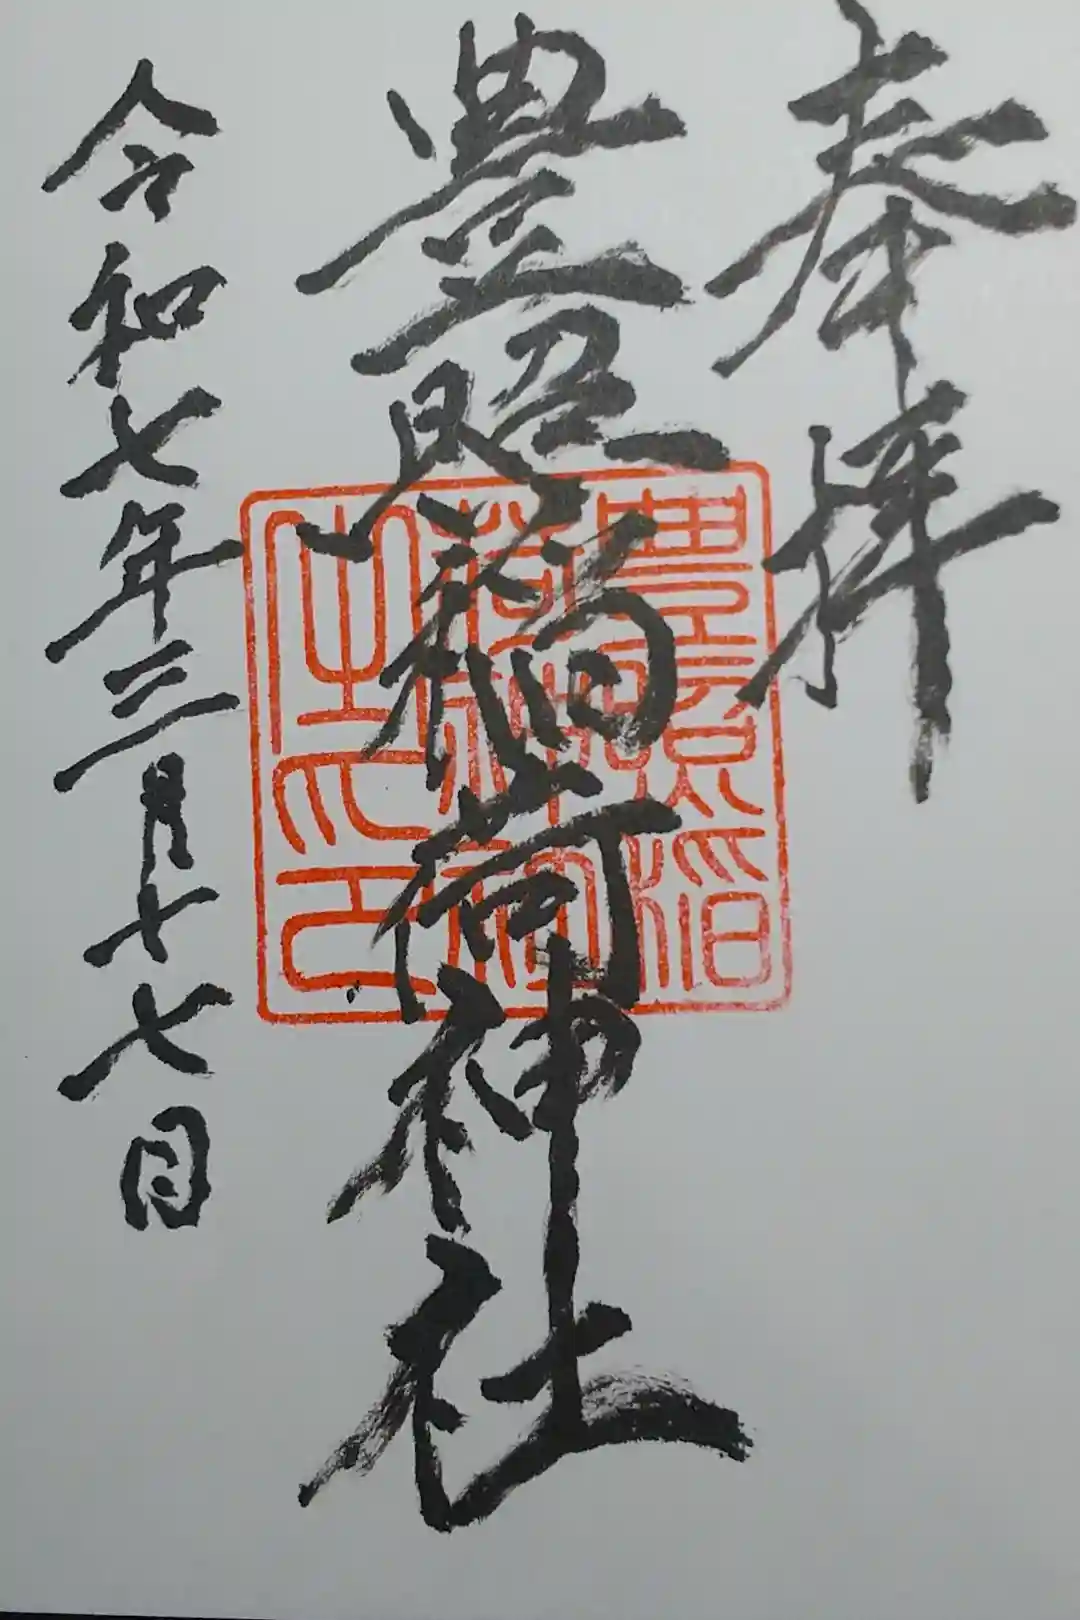 奉拝
豊照稲荷神社
令和七年三月十七日
豊照稲
荷神社
之印